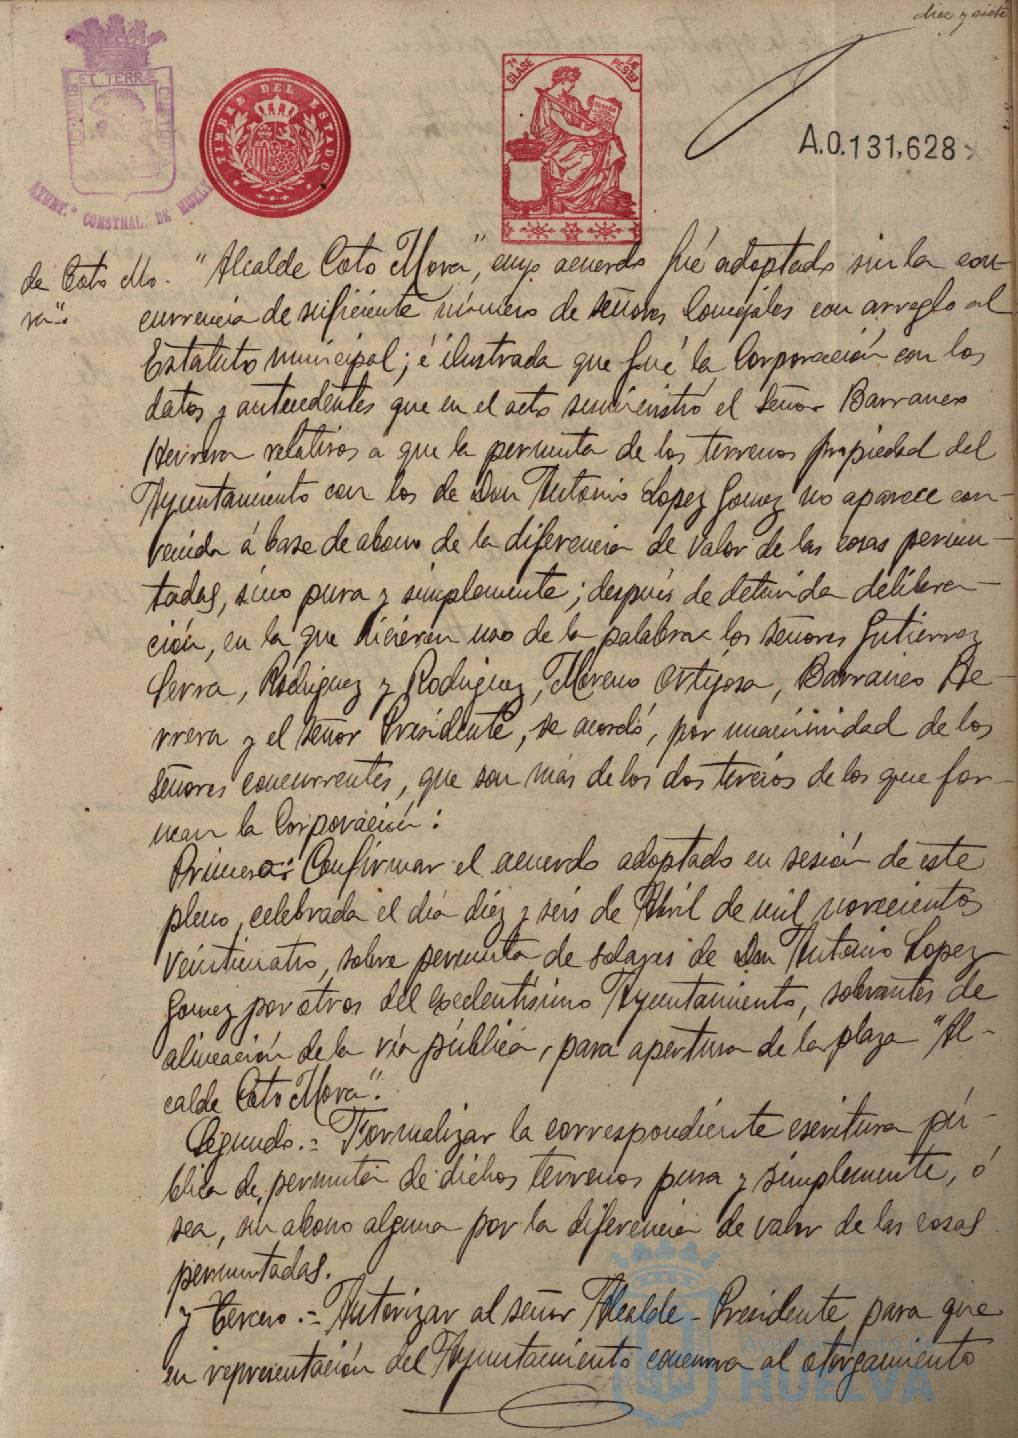 diez y siete
ET TERRÆ
AYUNT.º CONSTNAL. DE HUELVA
TIMBRE DEL ESTADO
7ª CLASE
PESTAS
A.0.131,628
de Coto Mo-
ra"..
"Alcalde Coto Mora", cuyo acuerdo fué adoptado sin la con-
currencia de suficiente número de señores Concejales con arreglo al
Estatuto municipal; é ilustrada que fué la Corporación con los
datos y antecedentes que en el acto suministró el señor Barranco
Herrera relativos a que la permuta de los terrenos propiedad del
Ayuntamiento con los de Don Antonio Lopez Gomez no aparece con-
venida á base de abono de la diferencia de valor de las cosas permu-
tadas, sino pura y simplemente; después de detenida delibera-
ción, en la que hicieron uso de la palabra los señores Gutierrez
Serra, Rodriguez y Rodriguez, Moreno Ortijosa, Barranco He-
rrera y el señor Presidente, se acordó, por unanimidad de los
señores concurrentes, que son más de los dos tercios de los que for-
man la Corporación:
Primero: Confirmar el acuerdo adoptado en sesión de este
pleno, celebrada el día diez y seis de Abril de mil novecientos
veinticuatro, sobre permuta de solares de Don Antonio Lopez
Gomez por otros del excelentísimo Ayuntamiento, sobrantes de
alineación de la vía pública, para apertura de la plaza "Al-
calde Coto Mora".
Segundo.= Formalizar la correspondiente escritura pú-
blica de permuta de dichos terrenos pura y simplemente, ó
sea, sin abono alguno por la diferencia de valor de las cosas
permutadas.
y Tercero.= Autorizar al señor Alcalde-Presidente para que
en representación del Ayuntamiento concurra al otorgamiento
Ayuntamiento de
HUELVA